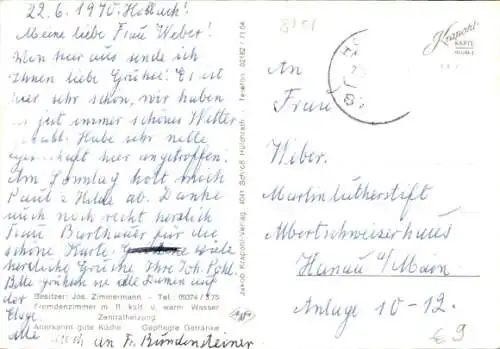 22.6.1970. Hobbach!
Meine liebe Frau Weber!
Von hier aus sende ich
Ihnen liebe Grüße! Es ist
hier sehr schön, wir haben
jst immer schönes Wetter
gehabt. Habe sehr nette
hier angetroffen!
Am Sonntag holt mich
Paul u Hilde ab. Danke
auch noch recht herzlich
Frau Barthauer für die
schöne Karte. viele
herzliche Grüße Ihre Joh. Pohl.
Bitte grüßen sie alle Damen auf
der
Etage
Alle
noch an Fr. Bründensteiner
Besitzer: Jos. Zimmermann - Tel.: 09374 / 375
Fremdenzimmer m fl kalt u. warm Wasser
Zentralheizung
Anerkannt gute Küche Gepflegte Getränke
Jakob Krapohl-Verlag 4041 Schloß Hülchrath Telefon 02182 / 7104
Krapohl
KARTE
An
Frau
Weber.
Martin lutherstift
Albertschweizerhaus
Hanau a/Main
Anlage 10-12.
€ 9